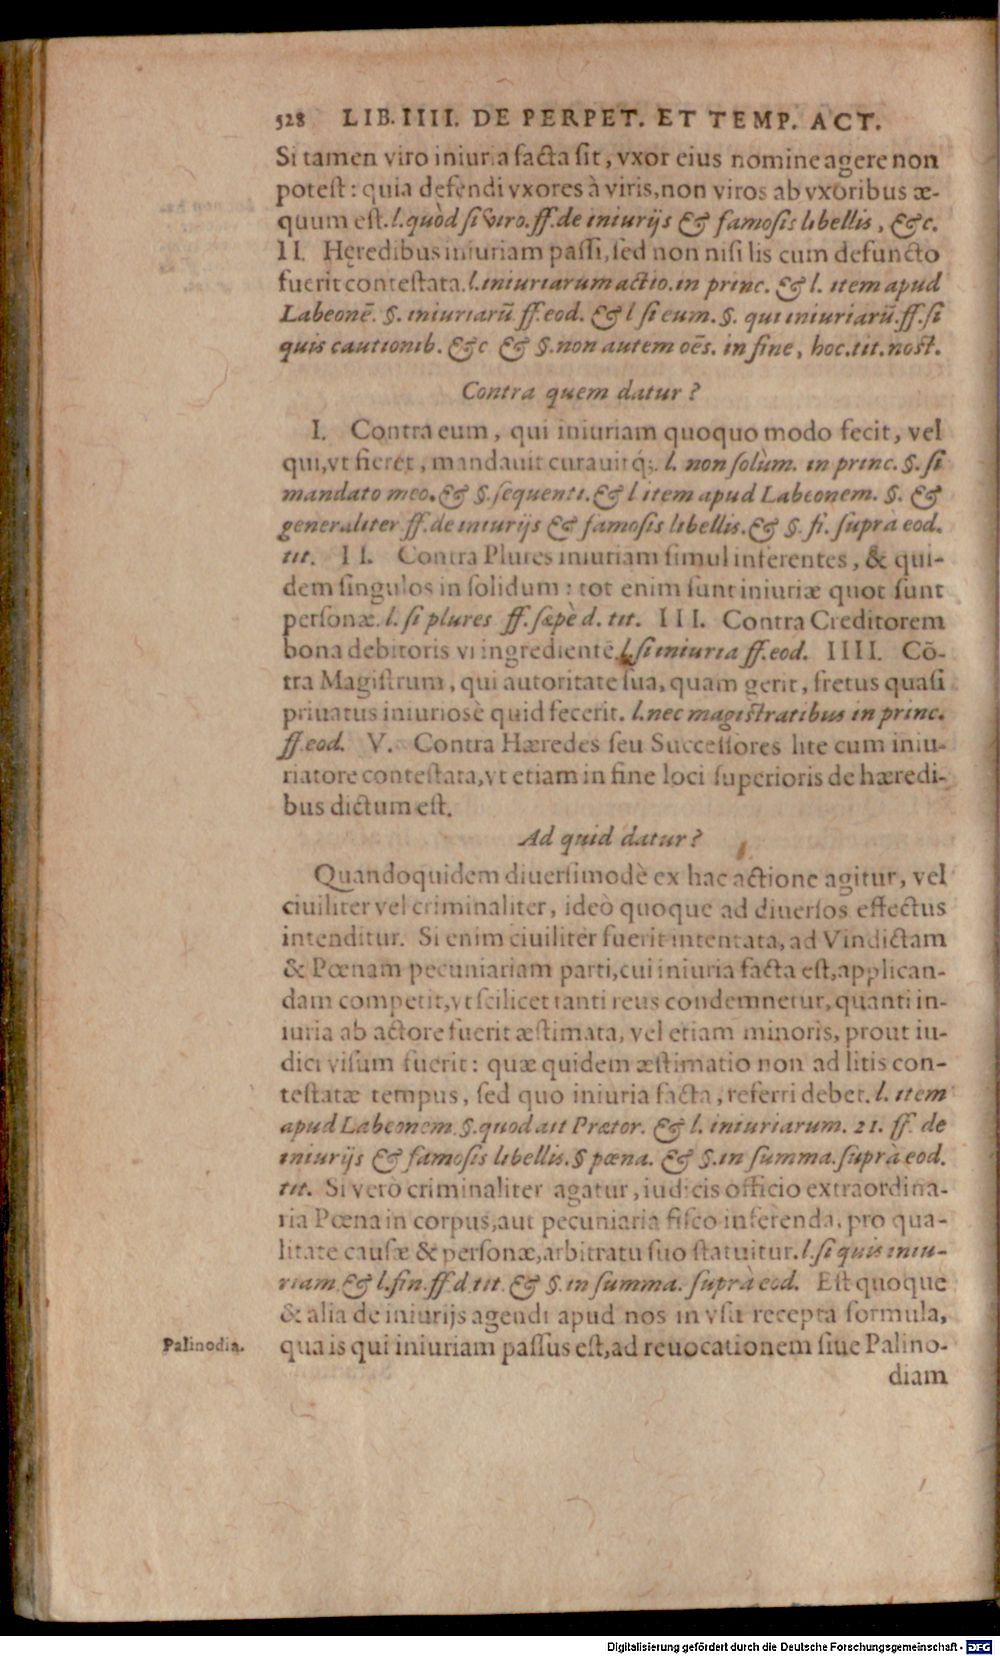 528 LIB. IIII. DE PERPET. ET TEMP. ACT.
Si tamen viro iniuria facta sit, vxor eius nomine agere non
potest: quia defendi vxores à viris, non viros ab vxoribus æ-
quum est. l. quòd si viro. ff. de iniurijs & famosis libellis, &c.
II. Hęredibus iniuriam passi, sed non nisi lis cum defuncto
fuerit contestata. l. iniuriarum actio. in princ. & l. item apud
Labeonē. §. iniuriarū. ff. eod. & l si eum. §. qui iniuriarū. ff. si
quis cautionib. &c & §. non autem oēs. in fine, hoc. tit. nost.
Contra quem datur?
I. Contra eum, qui iniuriam quoquo modo fecit, vel
qui, vt fieret, mandauit curauitq́;. l. non solùm. in princ. §. si
mandato meo. & §. sequenti. & l item apud Labeonem. §. &
generaliter ff. de iniurijs & famosis libellis. & §. fi. suprà eod.
tit. II. Contra Plures iniuriam simul inferentes, & qui-
dem singulos in solidum: tot enim sunt iniuriæ quot sunt
personæ. l. si plures ff. sæpè d. tit. III. Contra Creditorem
bona debitoris vi ingredientē l. si iniuria ff. eod. IIII. Cō-
tra Magistrum, qui autoritate sua, quam gerit, fretus quasi
priuatus iniuriosè quid fecerit. l. nec magistratibus in princ.
ff. eod. V. Contra Hæredes seu Successores lite cum iniu-
riatore contestata, vt etiam in fine loci superioris de hæredi-
bus dictum est.
Ad quid datur?
Quandoquidem diuersimodè ex hac actione agitur, vel
ciuiliter vel criminaliter, ideò quoque ad diuersos effectus
intenditur. Si enim ciuiliter fuerit intentata, ad Vindictam
& Pœnam pecuniariam parti, cui iniuria facta est, applican-
dam competit, vt scilicet tanti reus condemnetur, quanti in-
iuria ab actore fuerit æstimata, vel etiam minoris, prout iu-
dici visum fuerit: quæ quidem æstimatio non ad litis con-
testatæ tempus, sed quo iniuria facta, referri debet. l. item
apud Labeonem. §. quod ait Prætor. & l. iniuriarum. 21. ff. de
iniurijs & famosis libellis. § pœna. & §. in summa. suprà eod.
tit. Si verò criminaliter agatur, iudicis officio extraordina-
ria Pœna in corpus, aut pecuniaria fisco inferenda, pro qua-
litate causæ & personæ, arbitratu suo statuitur. l. si quis iniu-
riam. & l. fin. ff. d. tit. & §. in summa. suprà eod. Est quoque
& alia de iniurijs agendi apud nos in vsu recepta formula,
Palinodia. qua is qui iniuriam passus est, ad reuocationem siue Palino-
diam
Digitalisierung gefördert durch die Deutsche Forschungsgemeinschaft - DFG